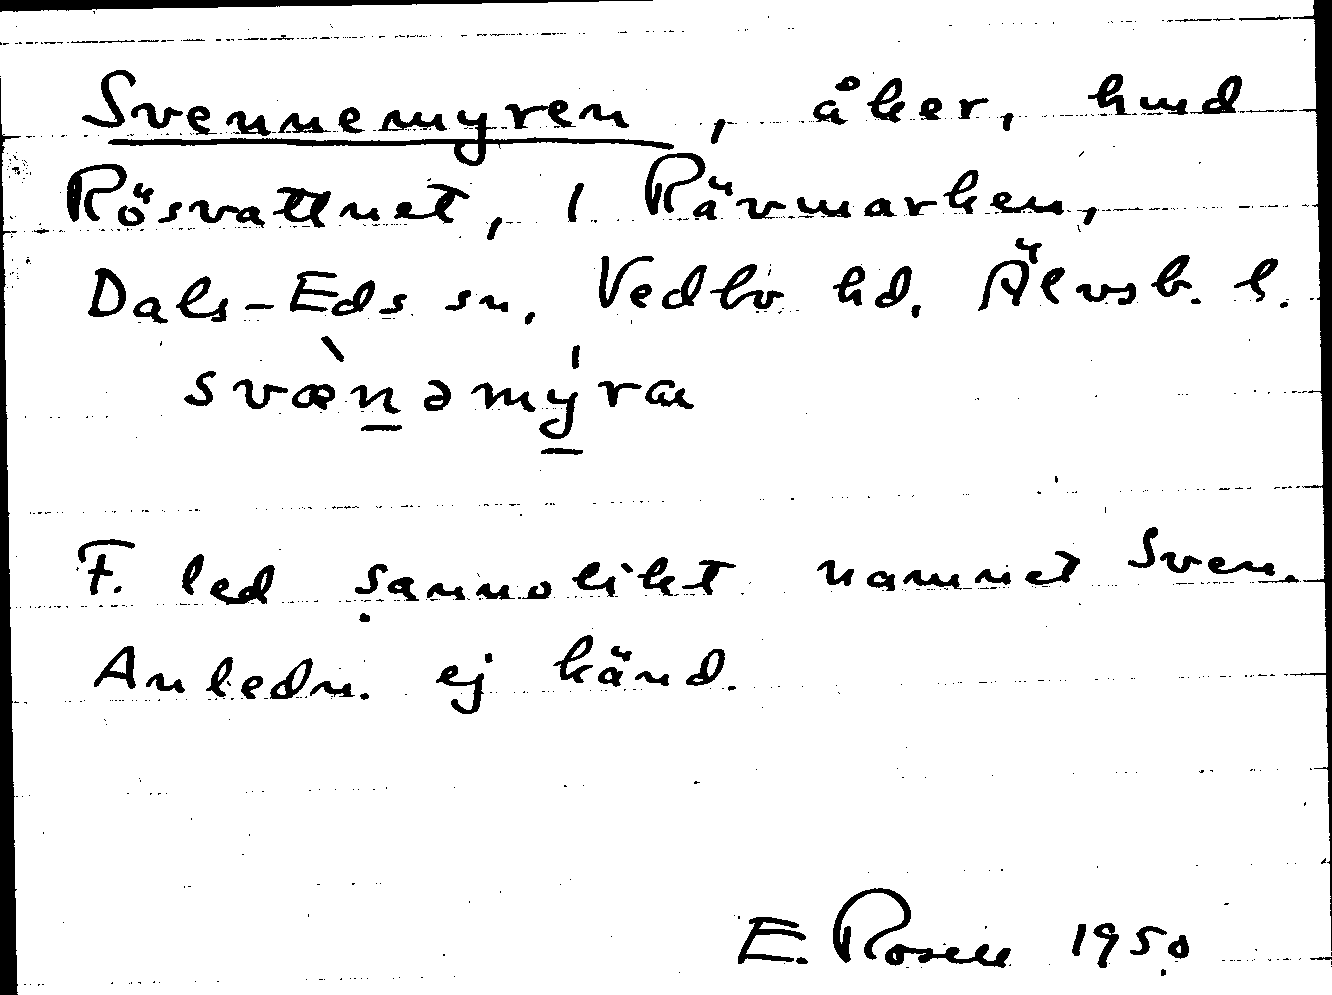 Svennemyren, åker, hmd
Rösvattnet, 1 Rävmarken,
Dals-Eds sn, Vedbo hd. Älvsb. l.
svæ̀nəmýra
F. led sannolikt namnet Sven.
Anledn. ej känd.
E. Rosell 1950